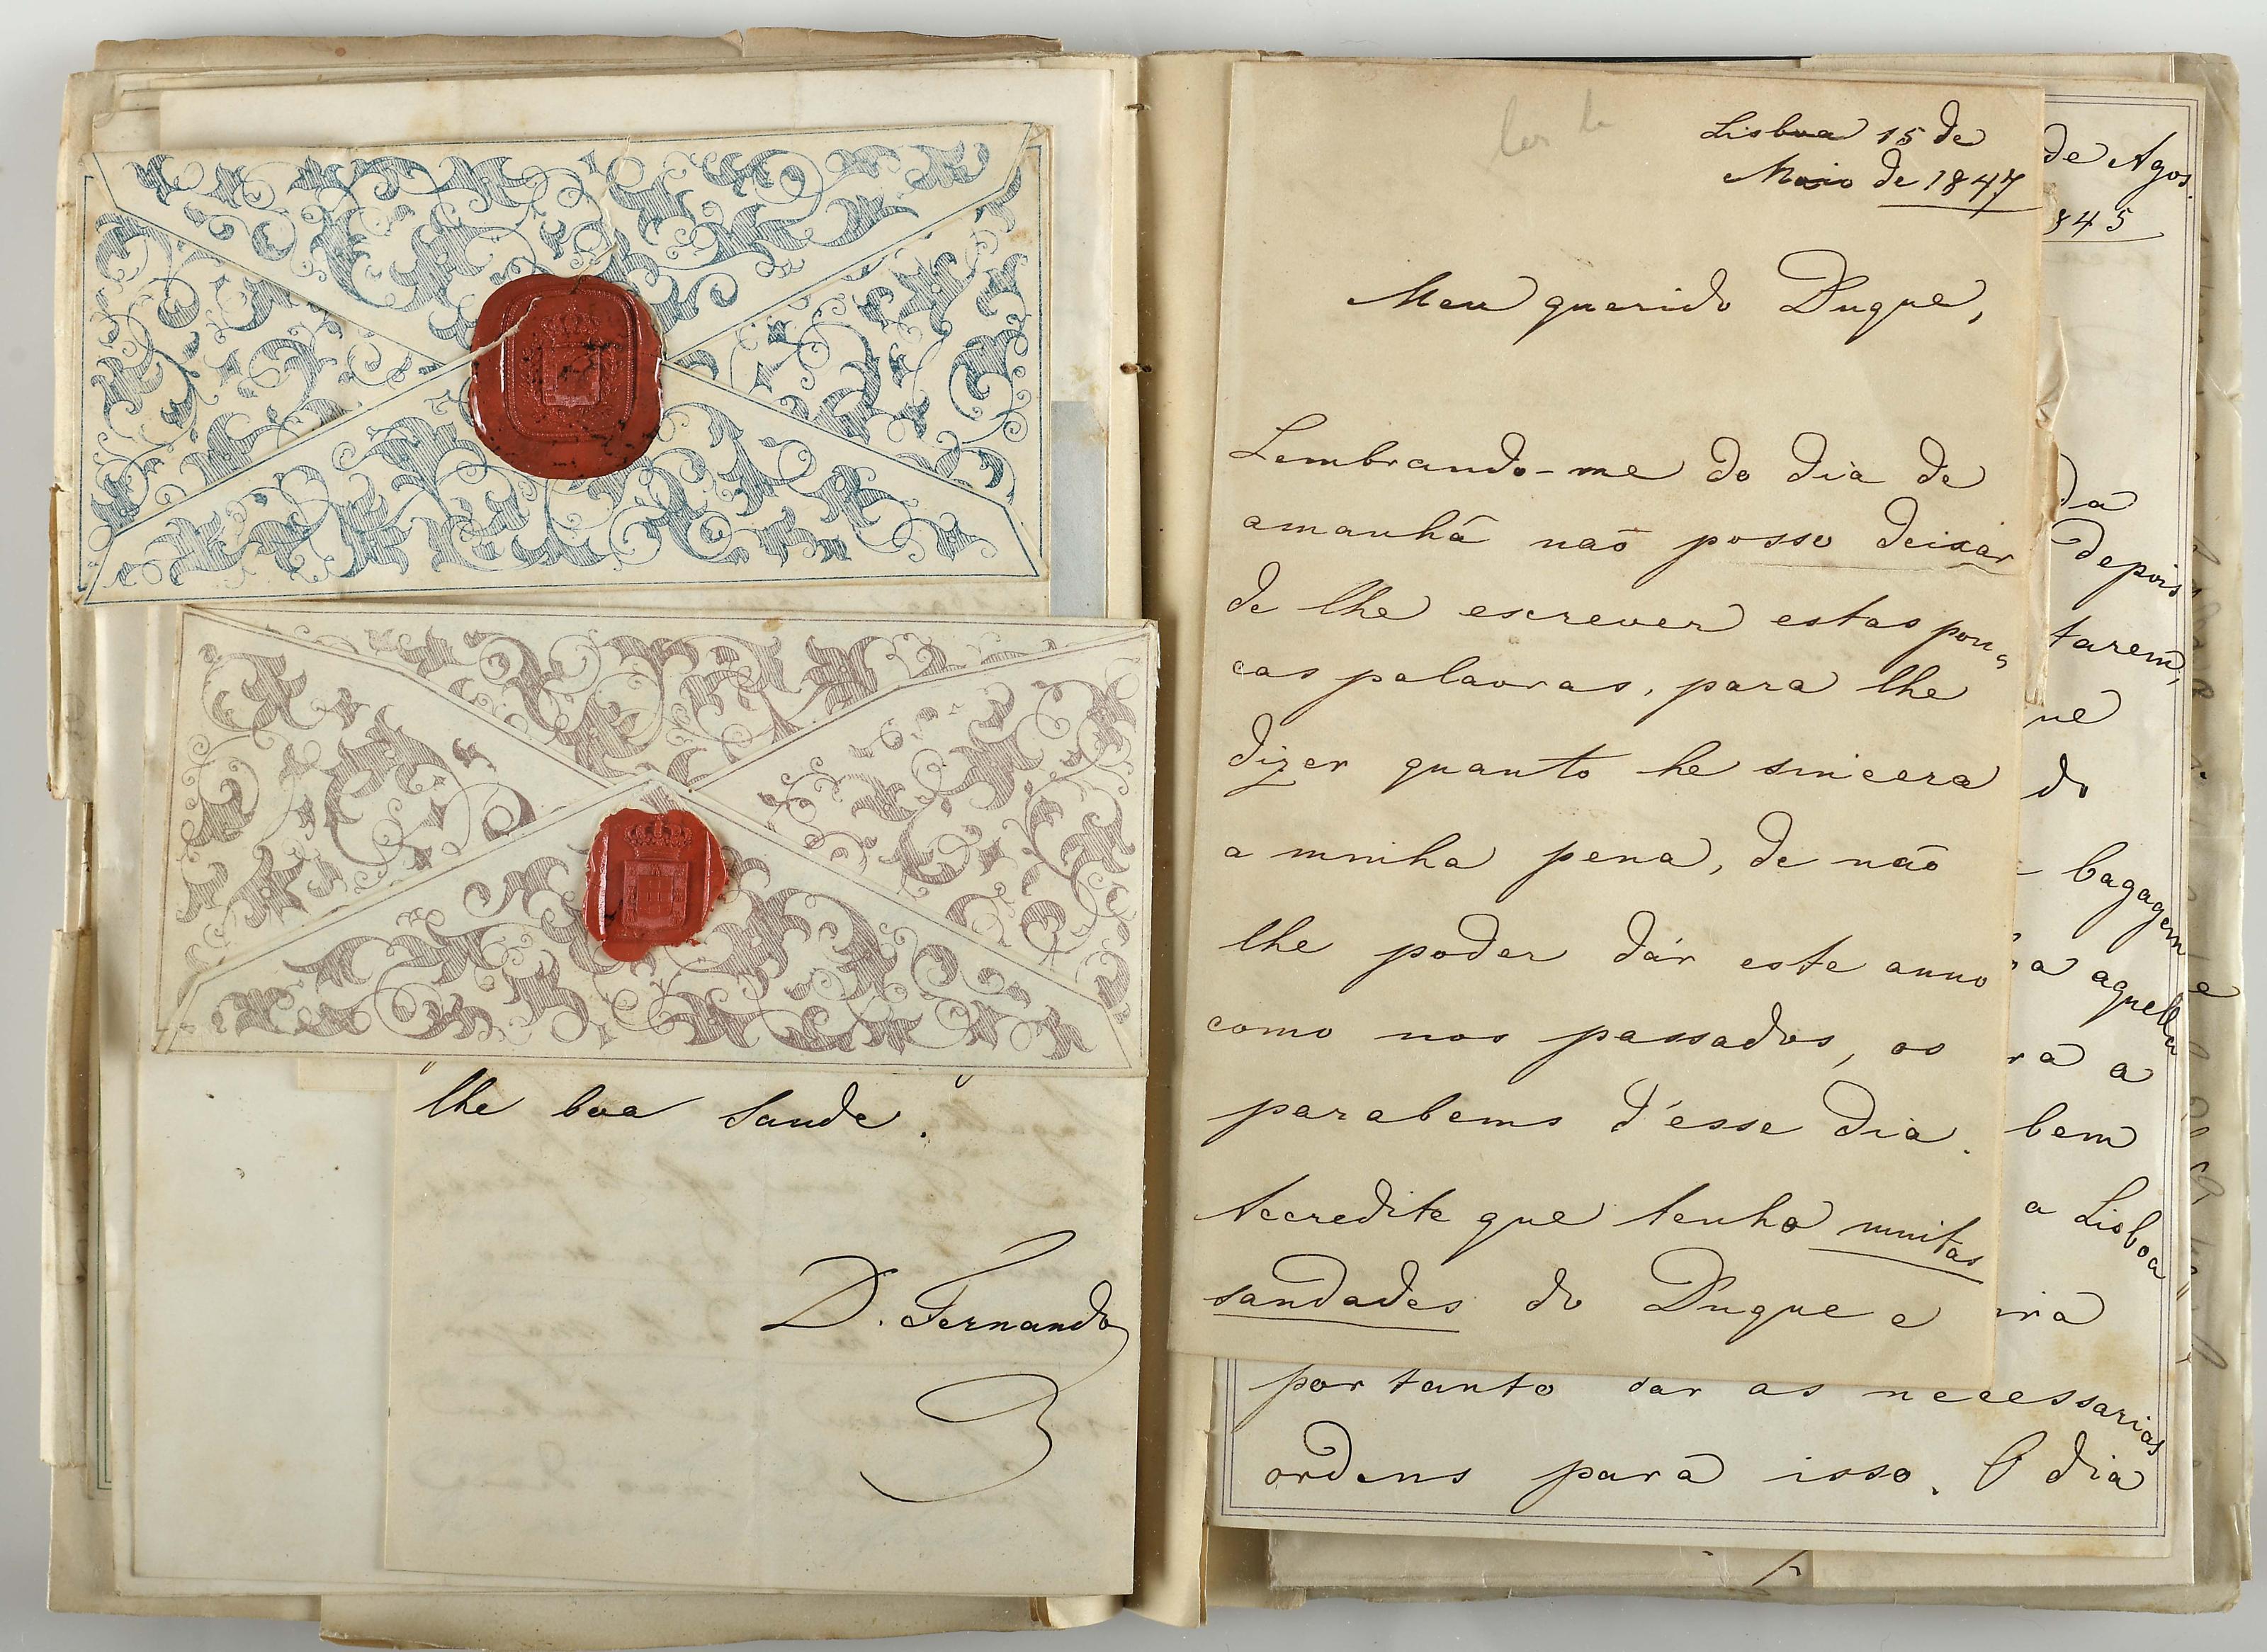 lhe boa saude.
D. Fernando
Lisboa 15 de
Maio de 1847
Meu querido Duque,
Lembrando-me do dia de
amanhã não posso deixar
de lhe escrever estas pou=
cas palavras, para lhe
dizer quanto he sincera
a minha pena, de não
lhe poder dár este anno
como nos passados, os
parabems d'esse dia.
Accredite que tenho muitas
saudades do Duque e
de Agos.
845
da
depois
tarem,
ue
do
bagagem
a aquella
ra a
bem
a Lisboa
irá
portanto dar as necessarias
ordens para isso. O dia